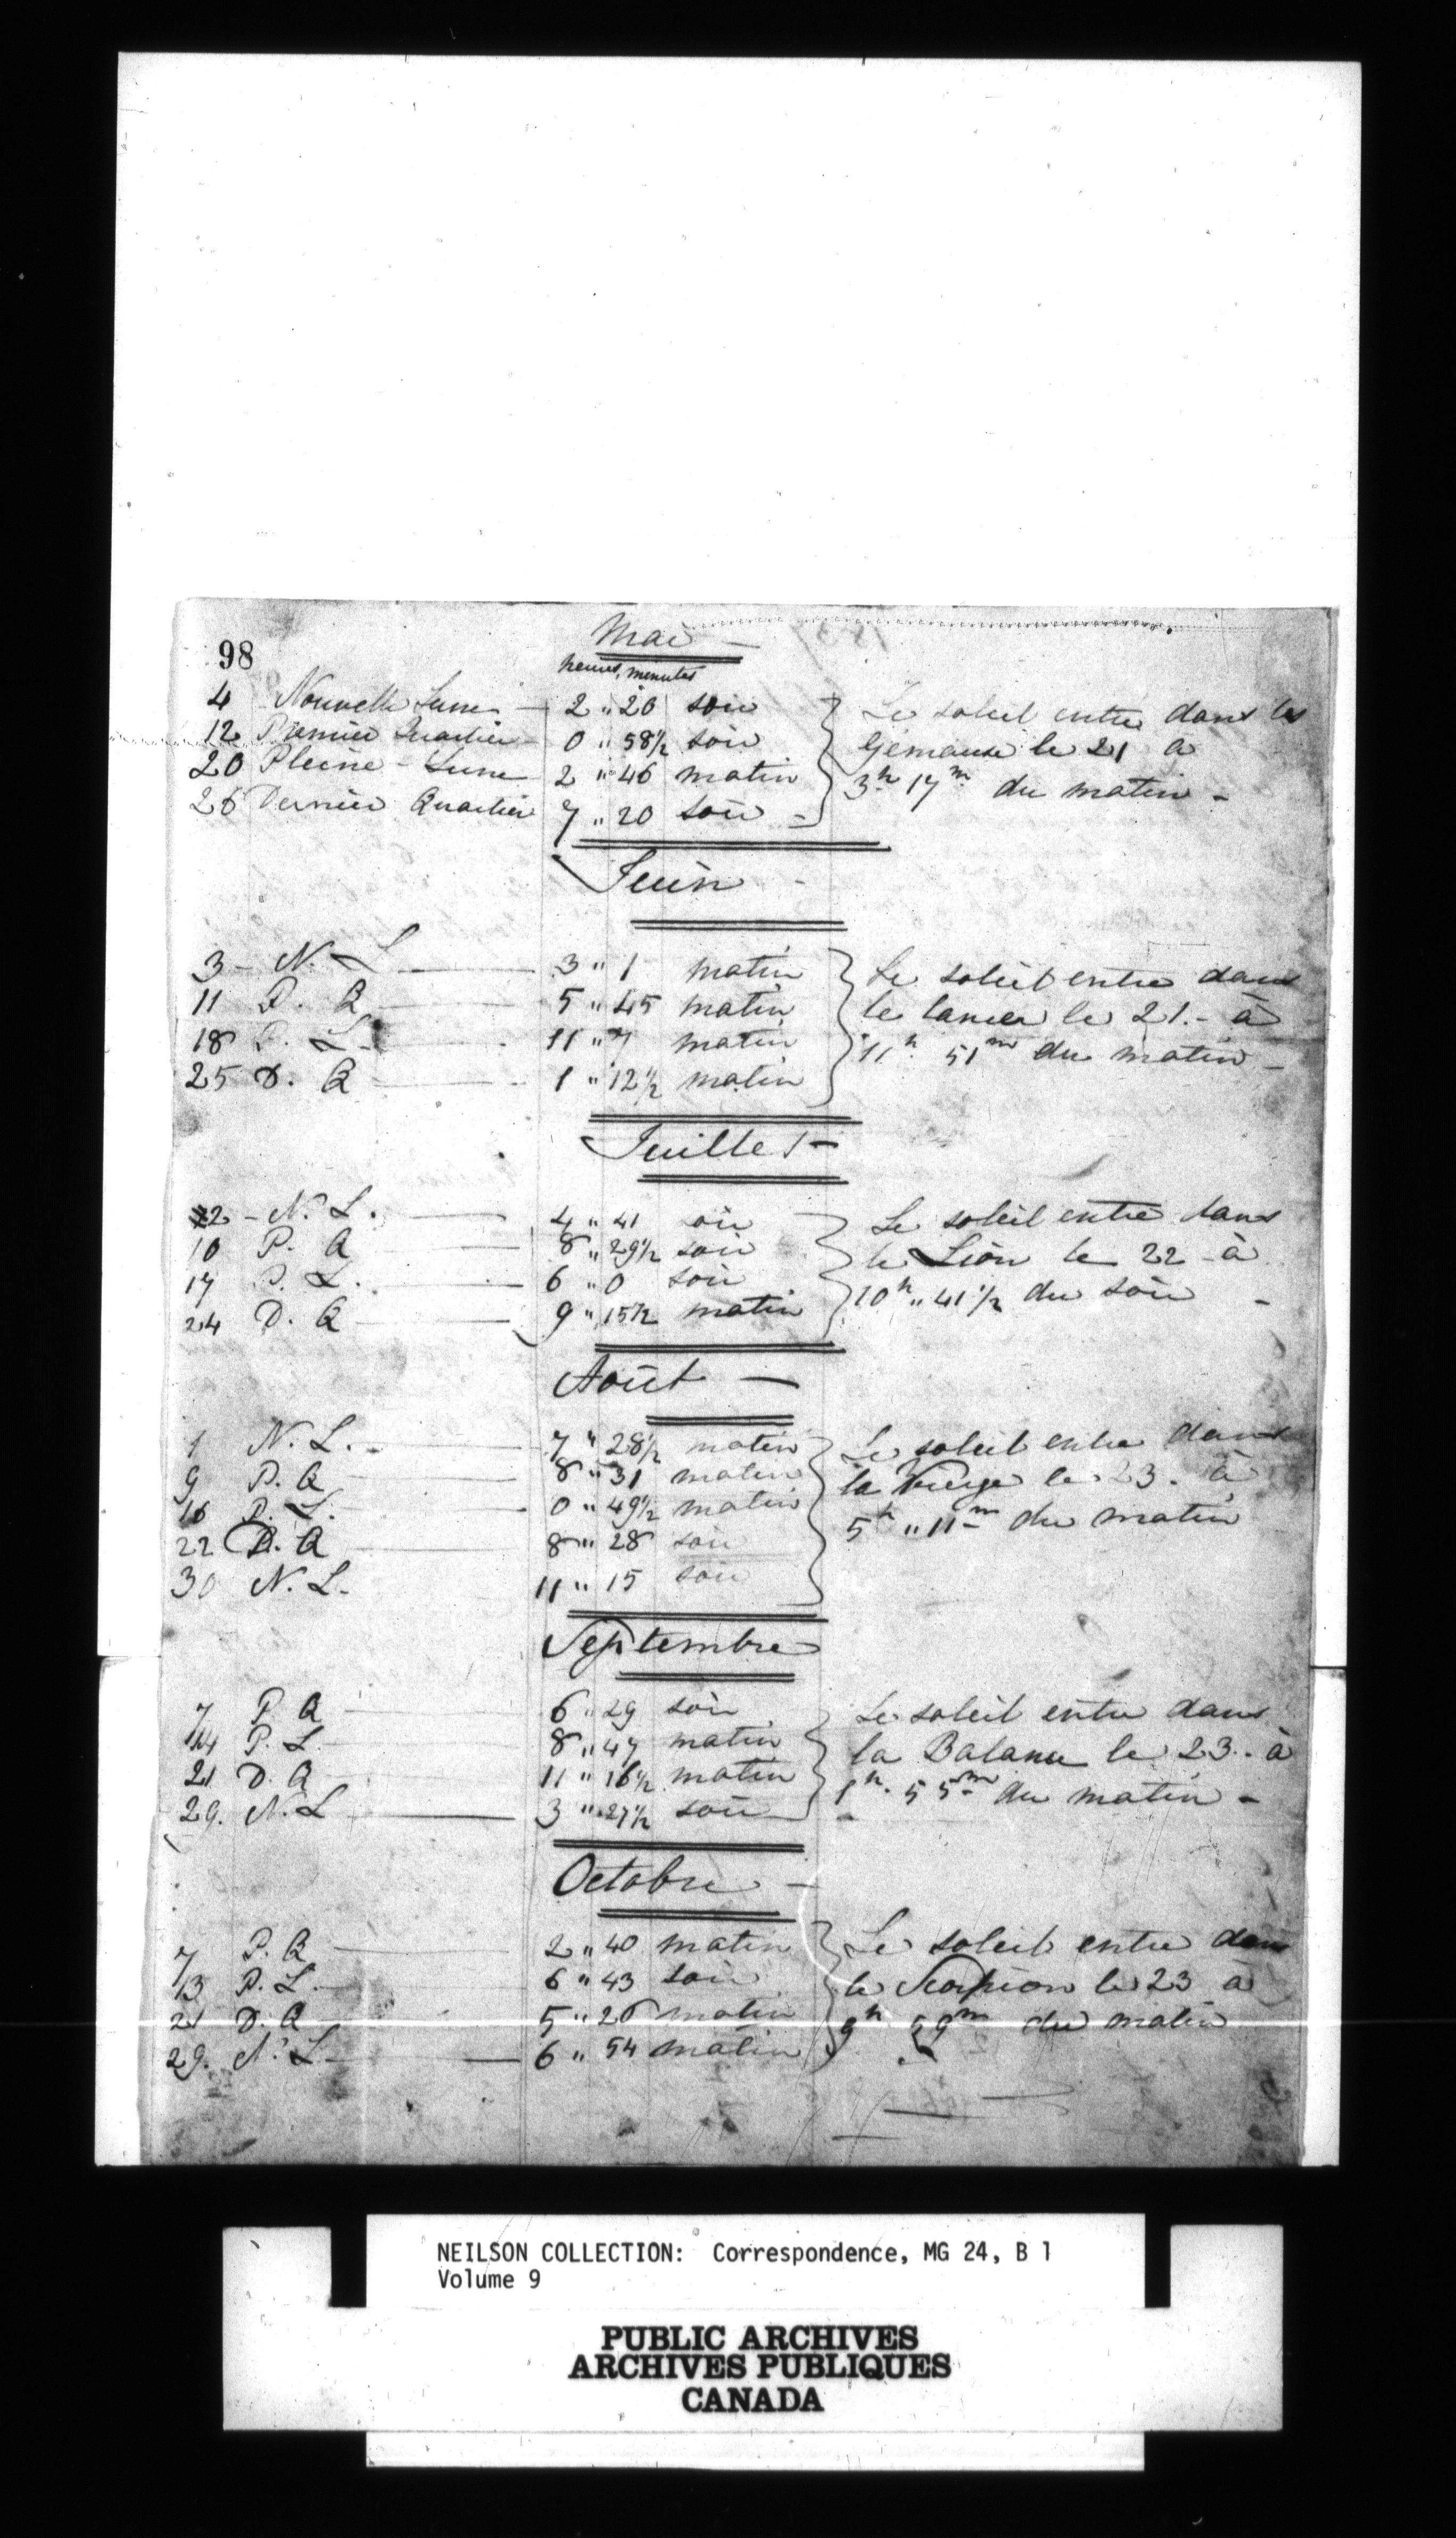 98
Mai -
heures, minutes
4 Nouvelle Lune - 2 " 20 soir } Le soleil entre dans les
12 Premier Quartier - 0 " 58½ soir } Gemeaux le 21 à
20 Pleine - Lune 2 " 46 matin } 3h 17m du matin -
26 Dernier Quartier 7 " 20 soir - }
Juin -
3 - N. L - 3 " 1 matin } Le soleil entre dans
11 P. Q - 5 " 45 matin } le Cancer le 21. - à
18 P. L - 11 " 7 matin } 11h 51m du matin -
25 D. Q - 1 " 12½ matin }
Juillet -
2 - N. L. - 4 " 41 soir } Le soleil entre dans
10 P. Q 8 " 29½ soir } le Lion le 22 à
17 P. L. - 6 " 0 soir } 10h " 41½ du soir -
24 D. Q - 9 " 15½ matin }
Août -
1 N. L. - 7 " 28½ matin } Le soleil entre dans
9 P. Q - 8 " 31 matin } la Vierge le 23. à
16 P. L. - 0 " 49½ matin } 5h " 11m du matin
22 D. Q - 8 " 28 soir }
30 N. L. 11 " 15 soir }
Septembre
7 P. Q - 6 " 29 soir } Le soleil entre dans
14 P. L. - 8 " 47 matin } la Balance le 23. - à
21 D. Q - 11 " 16½ matin } 1h. 55m du matin -
29. N. L - 3 " 27½ soir }
Octobre -
7 P. Q - 2 " 40 matin } Le soleil entre dans
13 P. L. - 6 " 43 soir } le Scorpion le 23 à
21 D. Q 5 " 26 matin } 9h 59m du matin
29. N. L - 6 " 54 matin }
NEILSON COLLECTION: Correspondence, MG 24, B 1
Volume 9
PUBLIC ARCHIVES
ARCHIVES PUBLIQUES
CANADA